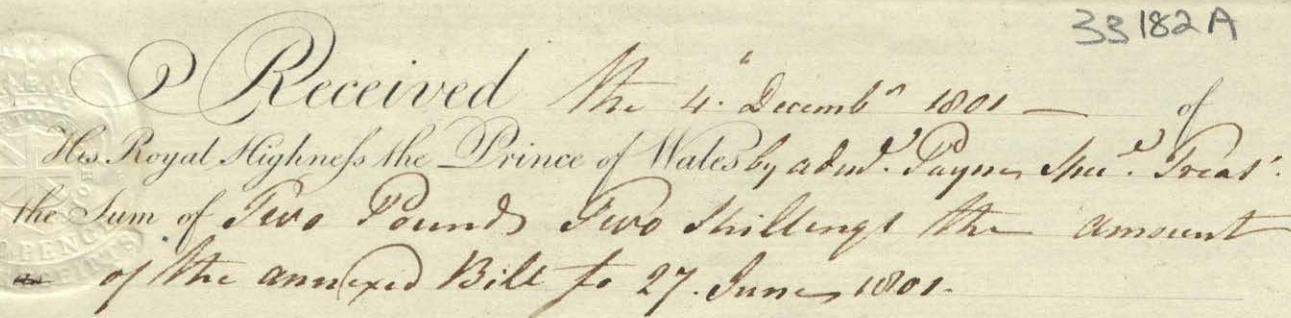 33182A
Received the 4th Decembr 1801 — of
His Royal Highness the Prince of Wales by Adml. Payne Treasr.
the Sum of Two Pounds Two Shillings the amount
of the annexed Bill to 27. June 1801.